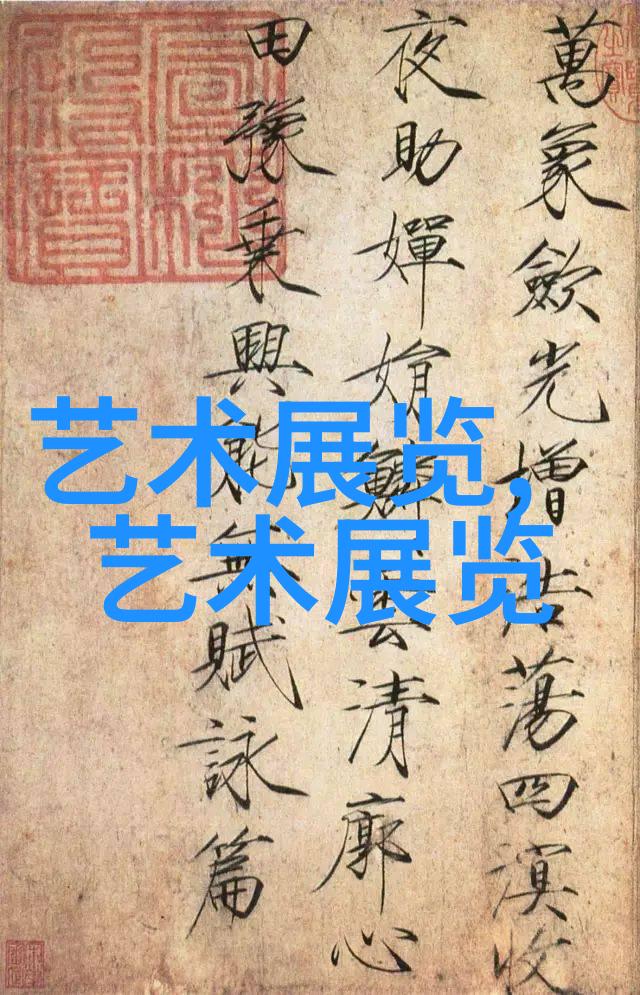 萬象歛光增浩蕩四溟收
夜助嬋娟鱗雲清廓心
田豫乗興能無賦詠篇
艺术展览,
艺术展览